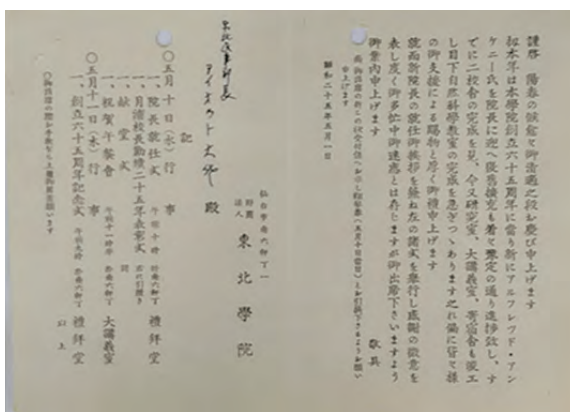 謹啓 陽春の候愈々御清適之段お慶び申上げます
扨本年は本學院創立六十五周年に當り新にアルフレツド・アン
ケニー氏を院長に迎へ復興擴充も着々豫定の通り進捗致し、す
でに二校舎の完成を見、今又研究室、大講義室、寄宿舎も竣工
し目下自然科學教室の完成を急ぎつゝあります之れ偏に皆々様
の御支援による賜物と厚く御禮申上げます
就而新院長の就任御挨拶を兼ね左の諸式を擧行し感謝の微意を
表し度く御多忙中御迷惑とは存じますが御出席下さいますよう
御案内申上げます
敬具
申上げます
昭和二十五年五月一日
仙台市南六軒丁一
財團法人 東北學院
殿
記
〇五月十日(水)行事
一、院長就任式 午前十時 於南六軒丁 禮拜堂
一、月浦校長勤續二十五年表彰式 右に引續き
一、獻堂式 同
一、祝賀午餐會 於南六軒丁 大講義室
〇五月十一日(木)行事
一、創立六十五周年記念式 午前九時 於南六軒丁 禮拜堂
以上